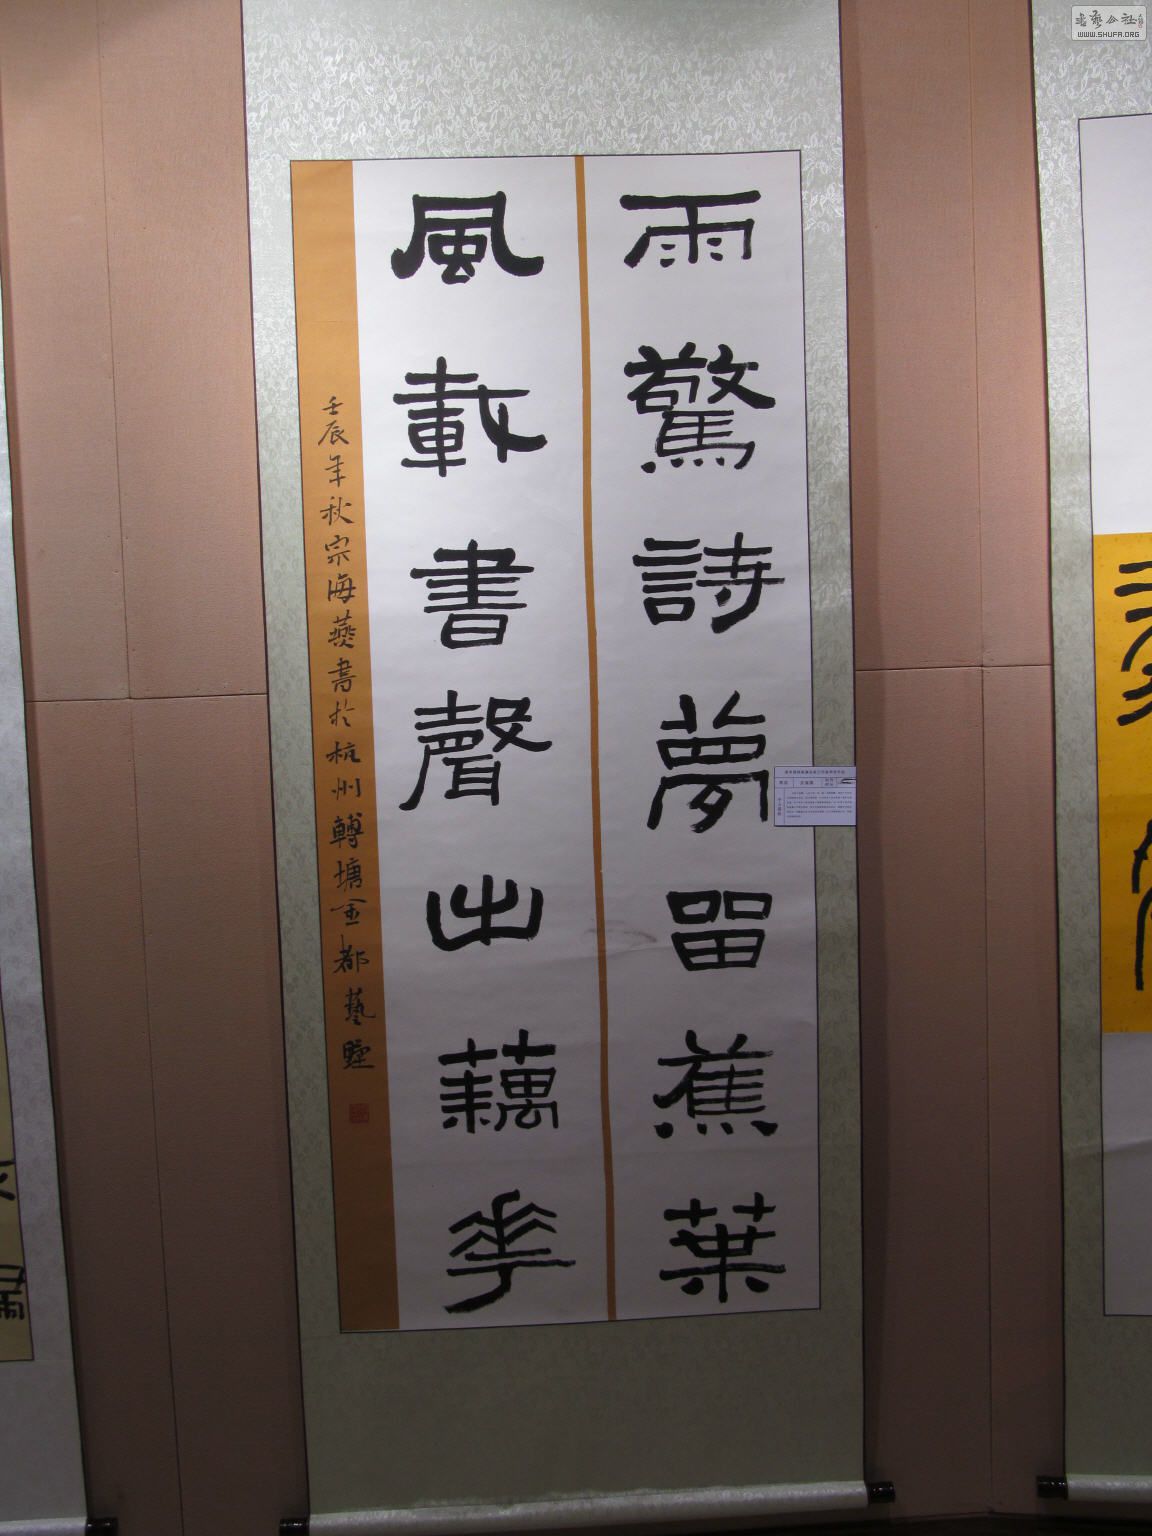 雨驚詩夢留蕉葉
風載書聲出藕花
壬辰年秋宗海燕書於杭州轉塘金都藝墅
書藝公社
WWW.SHUFA.ORG